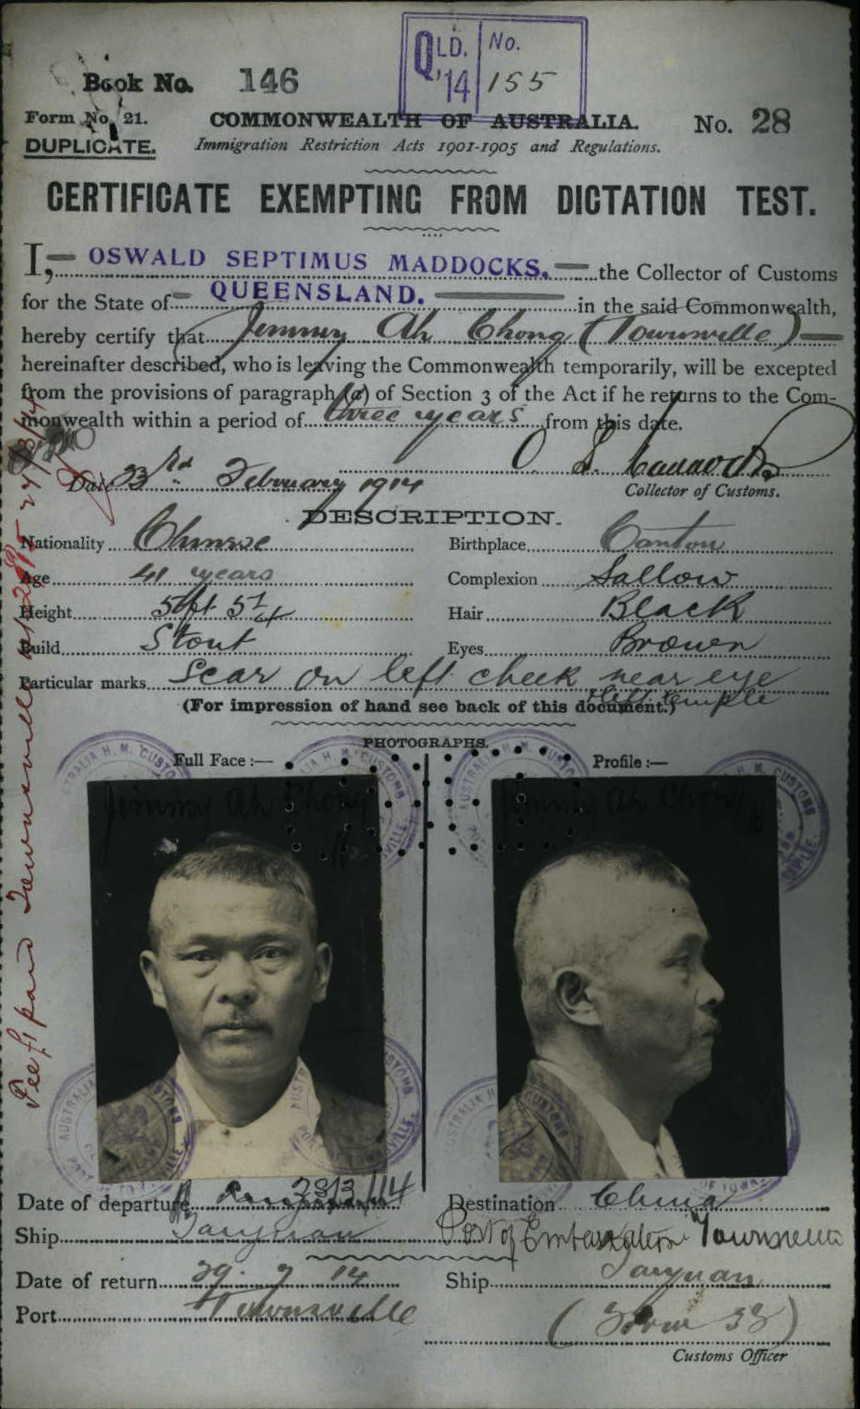 QLD. '14 No. 155
Book No. 146
Form No. 21. COMMONWEALTH OF AUSTRALIA. No. 28
DUPLICATE. Immigration Restriction Acts 1901-1905 and Regulations.
CERTIFICATE EXEMPTING FROM DICTATION TEST.
I, OSWALD SEPTIMUS MADDOCKS. the Collector of Customs
for the State of QUEENSLAND. in the said Commonwealth,
hereby certify that Jimmy Ah Chong (Townsville)
hereinafter described, who is leaving the Commonwealth temporarily, will be excepted
from the provisions of paragraph (a) of Section 3 of the Act if he returns to the Com-
monwealth within a period of three years from this date.
O. S. Maddocks
Date 23rd February 1914 Collector of Customs.
DESCRIPTION.
Nationality Chinese Birthplace Canton
Age 41 years Complexion Sallow
Height 5ft 5 Hair Black
Build Stout Eyes Brown
Particular marks Scar on left cheek near eye
left temple
(For impression of hand see back of this document.)
PHOTOGRAPHS.
Full Face :— Profile :—
Jimmy Ah Chong Jimmy Ah Chong
Fee £1 paid Townsville
Date of departure 28/3/14 Destination China
Ship Taiyuan Port of Embarkation Townsville
Date of return 29 7 14 Ship Taiyuan
Port Townsville (Form 32)
Customs Officer